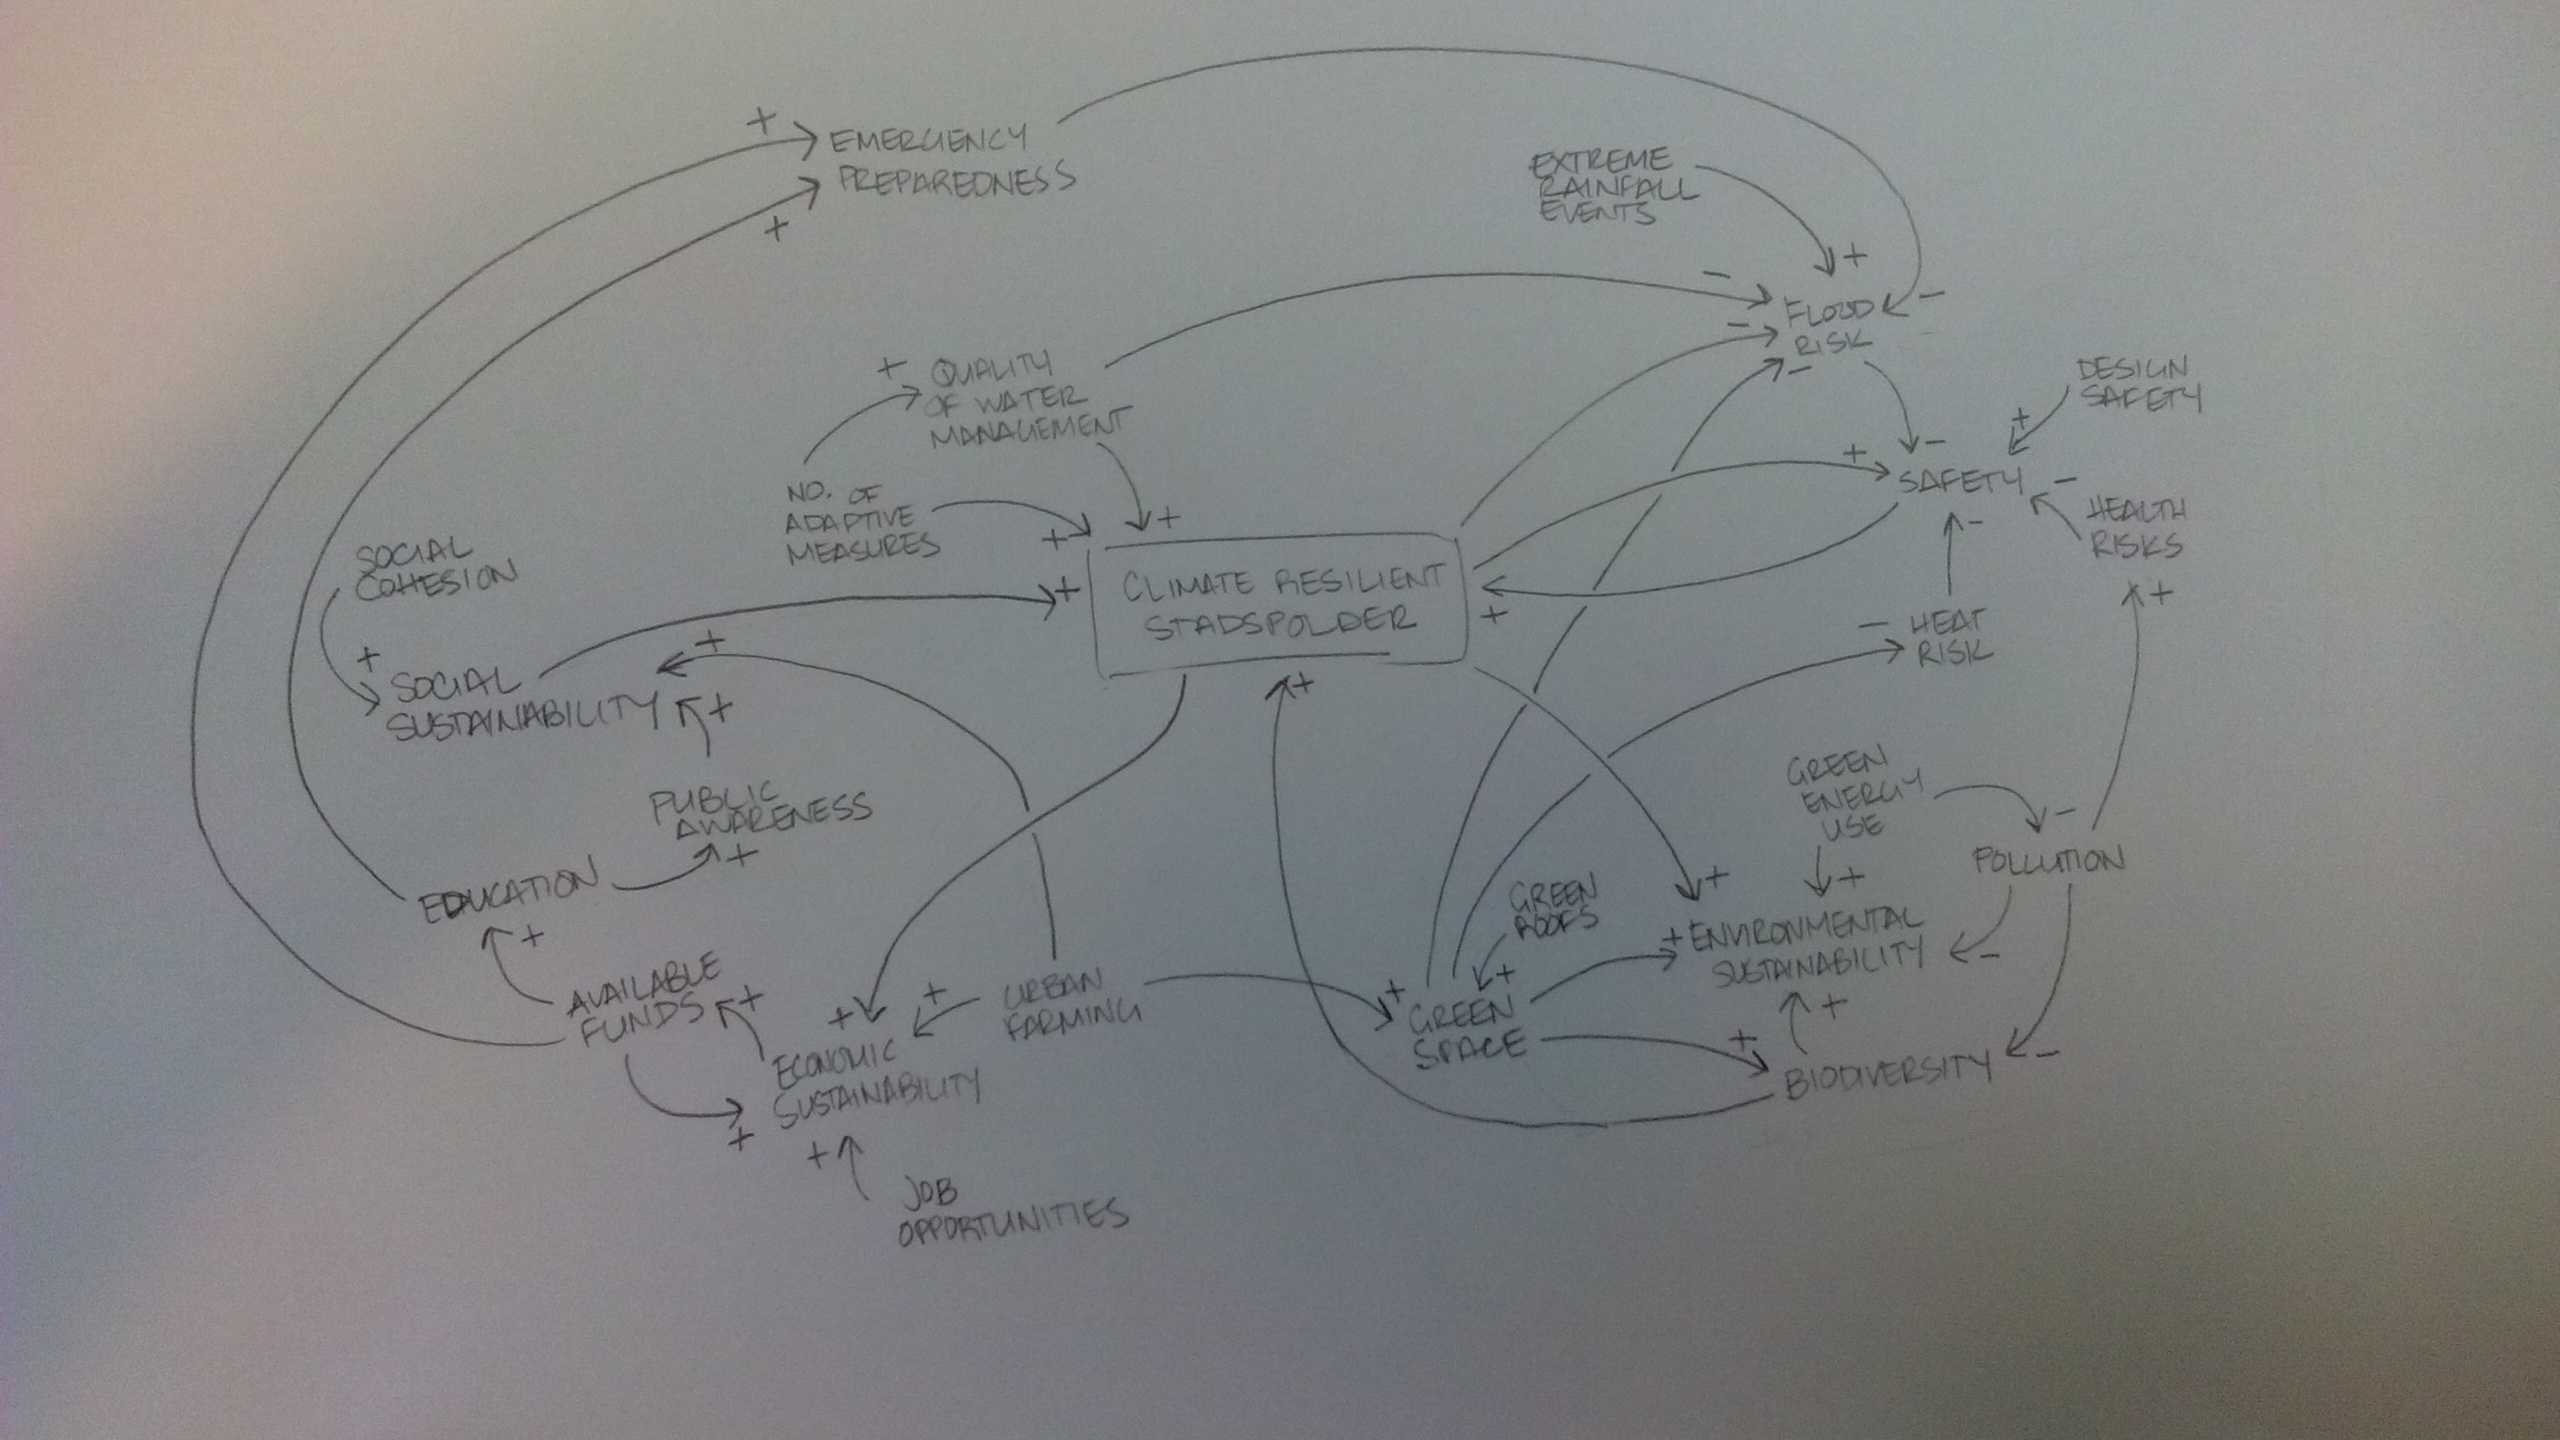 +
EMERGENCY
PREPAREDNESS
+
EXTREME
RAINFALL
EVENTS
+
-
-
FLOOD
RISK
-
-
QUALITY
OF WATER
MANAGEMENT
+
DESIGN
SAFETY
+
-
+
SAFETY
-
HEALTH
RISKS
+
-
NO. OF
ADAPTIVE
MEASURES
+
+
+
SOCIAL
COHESION
+
CLIMATE RESILIENT
STADSPOLDER
+
+
-
HEAT
RISK
SOCIAL
SUSTAINABILITY
+
+
PUBLIC
AWARENESS
+
GREEN
ENERGY
USE
+
-
POLLUTION
EDUCATION
+
GREEN
ROOFS
+
+
+
ENVIRONMENTAL
SUSTAINABILITY
-
AVAILABLE
FUNDS
+
+
+
URBAN
FARMING
+
GREEN
SPACE
+
+
BIODIVERSITY
-
ECONOMIC
SUSTAINABILITY
+
+
JOB
OPPORTUNITIES